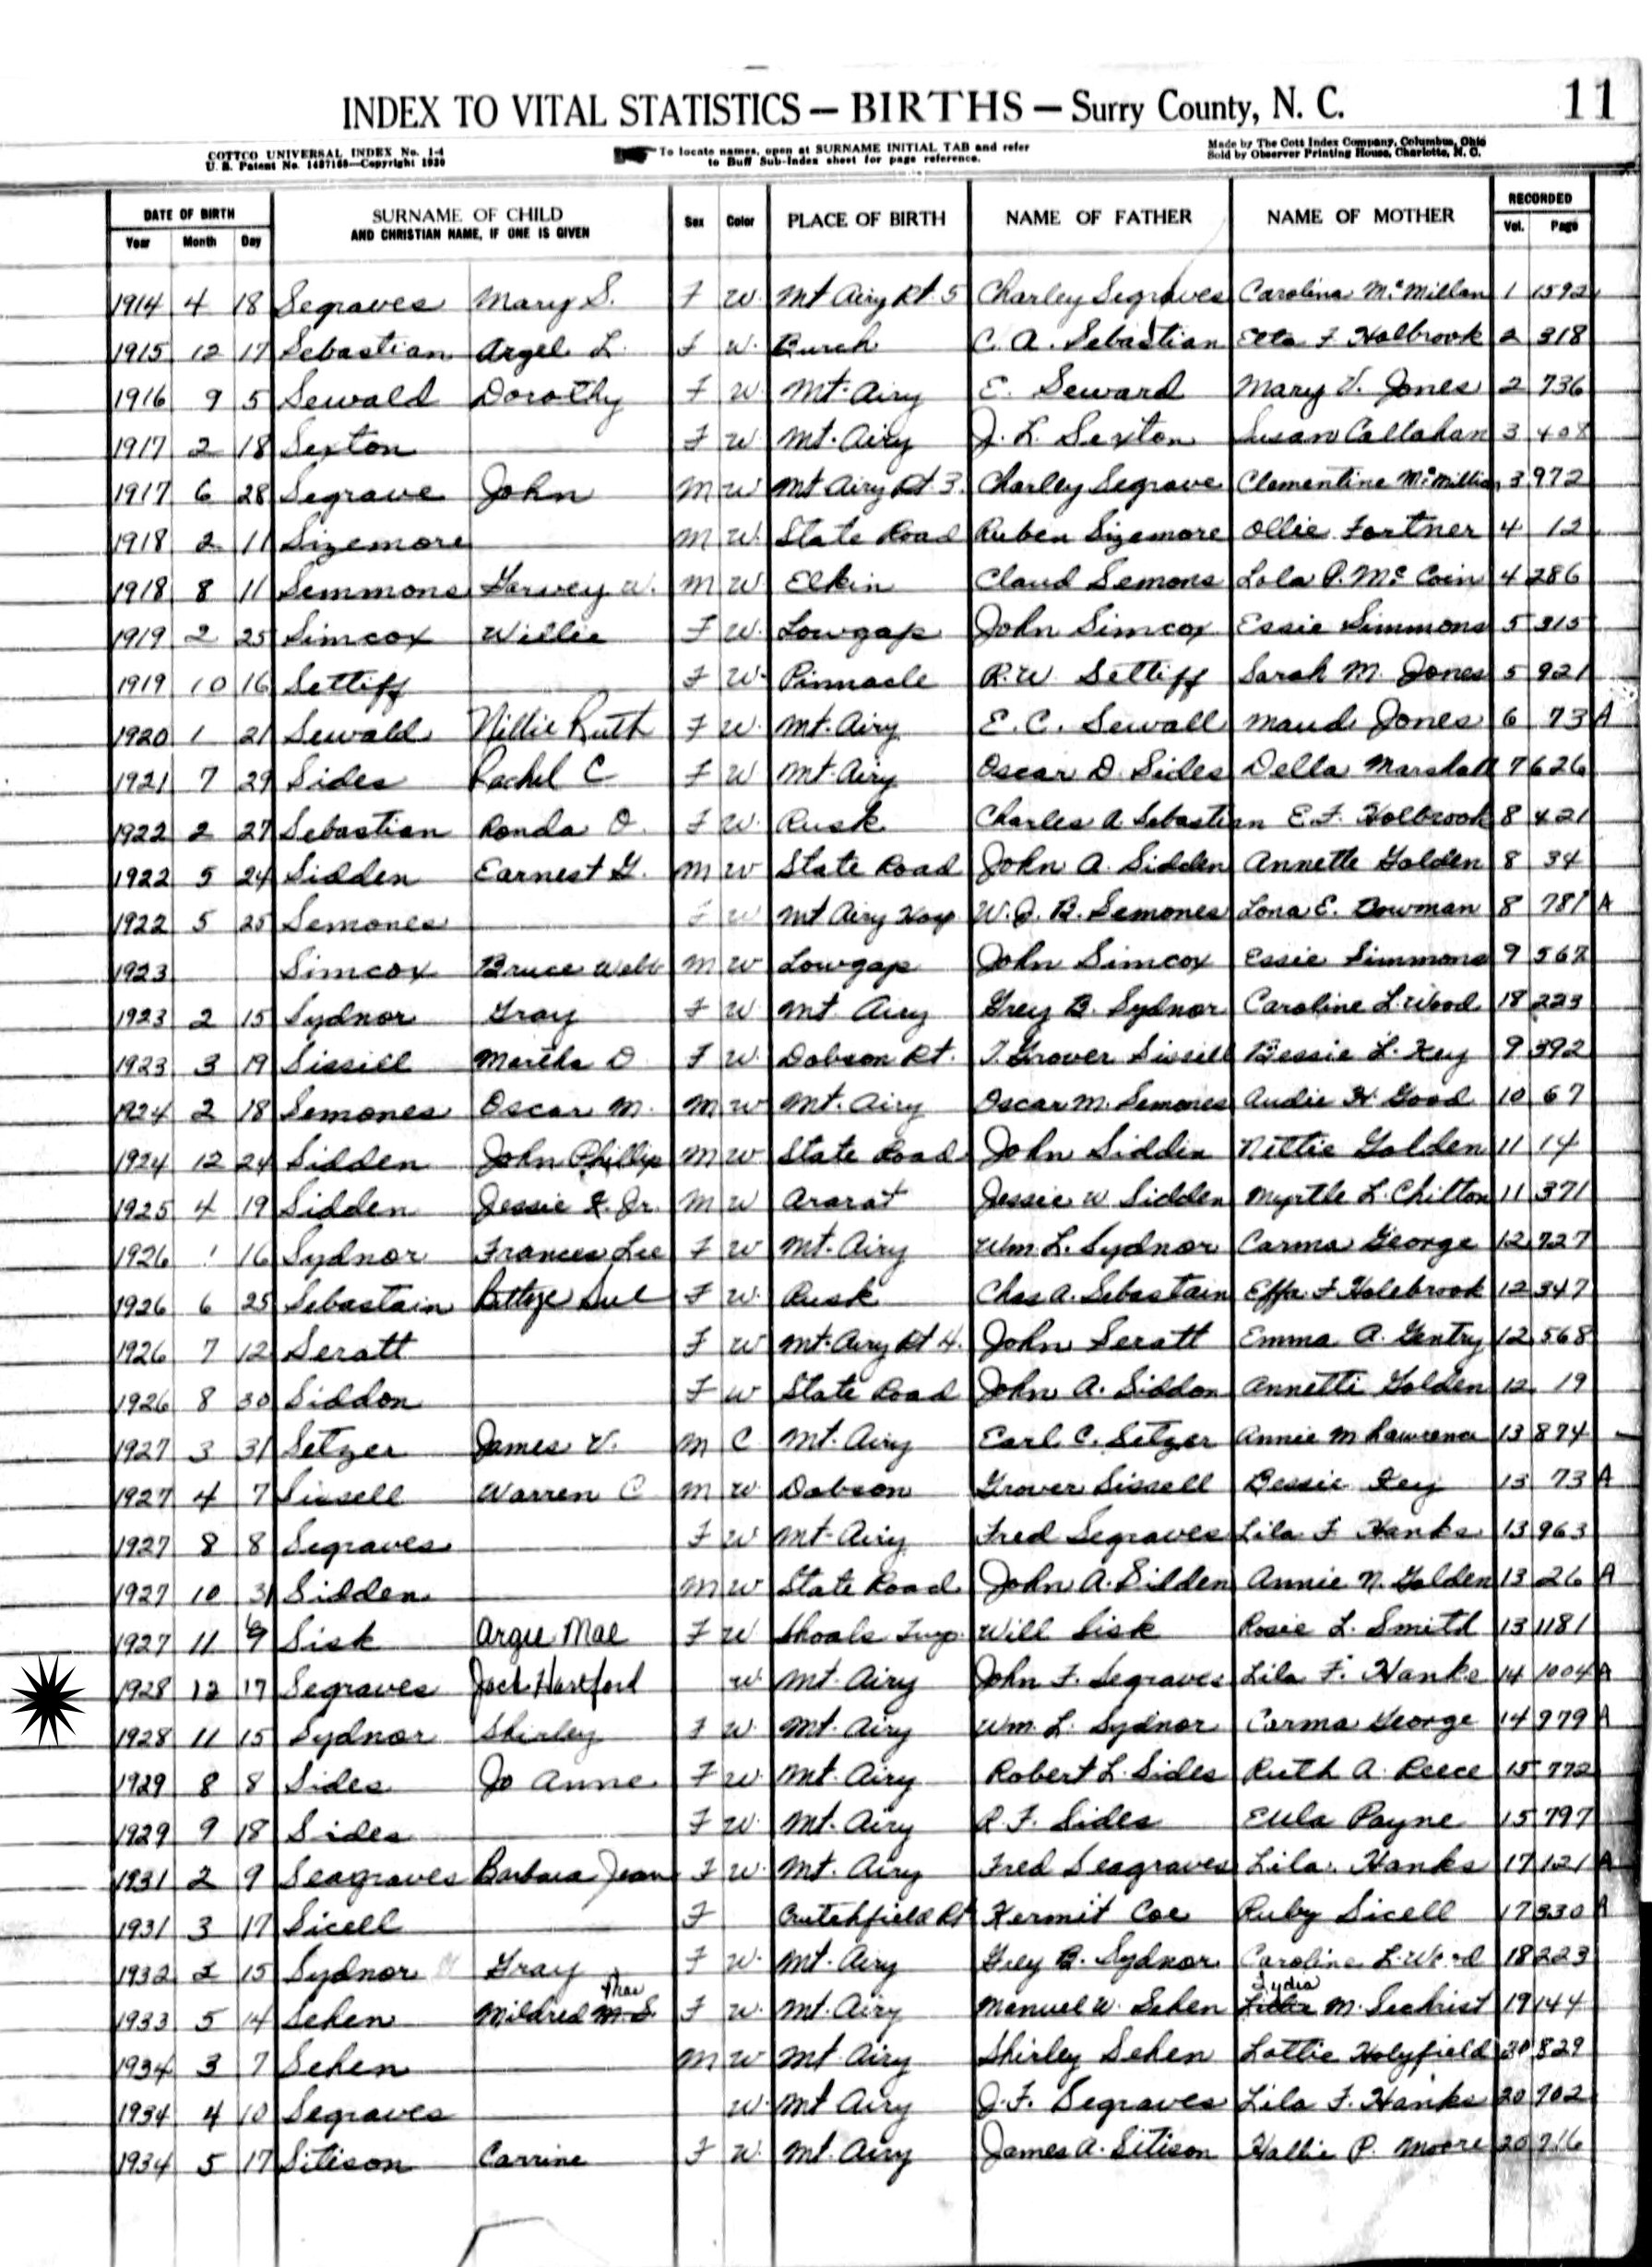 INDEX TO VITAL STATISTICS — BIRTHS — Surry County, N. C. 11
COTTCO UNIVERSAL INDEX No. 1-4 To locate names, open at SURNAME INITIAL TAB and refer Made by The Cott Index Company, Columbus, Ohio
U. S. Patent No. 1487169—Copyright 1930 to Buff Sub-Index sheet for page reference. Sold by Observer Printing House, Charlotte, N. C.
DATE OF BIRTH SURNAME OF CHILD Sex Color PLACE OF BIRTH NAME OF FATHER NAME OF MOTHER RECORDED
Year Month Day AND CHRISTIAN NAME, IF ONE IS GIVEN Vol. Page
1914 4 18 Segraves Mary S. F W. Mt Airy Rt. 5 Charley Segraves Carolina McMillan 1 1592
1915 12 17 Sebastian Argel L. F W. Burch C. A. Sebastian Etta F Holbrook 2 318
1916 9 5 Sewald Dorothy F W. Mt. Airy E. Seward Mary V. Jones 2 736
1917 2 18 Sexton F W. Mt. Airy J. L. Sexton Susan Callahan 3 408
1917 6 28 Segrave John M W Mt Airy Rt. 3. Charley Segrave Clementine McMillian 3 972
1918 2 11 Sizemore M W. State Road Ruben Sizemore Ollie Fortner 4 12
1918 8 11 Semmons Garvey W. M W Elkin Claud Semons Lola P. McCoin 4 286
1919 2 25 Simcox Willie F W. Lowgap John Simcox Essie Simmons 5 315
1919 10 16 Settiff F W. Pinnacle R. W Settiff Sarah M. Jones 5 921
1920 1 21 Sewald Nillie Ruth F W. Mt. Airy E. C. Sewall Maud Jones 6 73 A
1921 7 29 Sides Rachel C F W Mt. Airy Oscar D. Sides Della Marshall 7 626
1922 2 27 Sebastian Ronda O. F W. Rusk Charles A. Sebastian E. F. Holbrook 8 421
1922 5 24 Sidden Earnest G. M W State Road John A. Sidden Annette Golden 8 34
1922 5 25 Semones F W Mt Airy Hosp W. J. B. Semones Lona E. Bowman 8 781 A
1923 Simcox Bruce Webb M W Lowgap John Simcox Essie Simmons 9 567
1923 2 15 Sydnor Gray F W Mt. Airy Grey B. Sydnor Caroline L. Wood 18 223
1923 3 19 Sissill Martha D F W. Dobson Rt. T. Grover Sissill Bessie L. Key 9 392
1924 2 18 Semones Oscar M. M W Mt. Airy Oscar M. Semones Audie H. Good 10 67
1924 12 24 Sidden John Phillip M W State Road John Sidden Nettie Golden 11 14
1925 4 19 Sidden Jessie F. Jr. M W Ararat Jessie W Sidden Myrtle L. Chilton 11 371
1926 1 16 Sydnor Frances Lee F W Mt. Airy Wm. L. Sydnor Carma George 12 727
1926 6 25 Sebastain Bettye Sue F W. Rusk Chas A. Sebastain Effa F. Holebrook 12 347
1926 7 12 Seratt F W Mt. Airy Rt 4. John Seratt Emma A. Gentry 12 568
1926 8 30 Siddon F W State Road John A. Siddon Annetti Golden 12 19
1927 3 31 Setzer James V. M C Mt. Airy Earl C. Setzer Annie M Lawrence 13 874
1927 4 7 Sissell Warren C M W. Dobson Grover Sissell Bessie Key 13 73 A
1927 8 8 Segraves F W Mt. Airy Fred Segraves Lila F Hanks 13 963
1927 10 31 Sidden M W State Road John A. Sidden Annie N. Golden 13 26 A
1927 11 Sisk Argie Mae F W Shoals Twp. Will Sisk Rosie L. Smith 13 1181
1928 12 17 Segraves Jack Hartford W. Mt. Airy John F. Segraves Lila F. Hanks 14 1004 A
1928 11 15 Sydnor Shirley F W. Mt. Airy Wm. L. Sydnor Carma George 14 979 A
1929 8 8 Sides Jo Anne F W. Mt. Airy Robert L. Sides Ruth A. Reece 15 772
1929 9 18 Sides F W. Mt. Airy R. F. Sides Eula Payne 15 797
1931 2 9 Seagraves Barbara Jean F W. Mt. Airy Fred Seagraves Lila Hanks 17 121 A
1931 3 17 Sicell F Crutchfield Rt Kermit Coe Ruby Sicell 17 330 A
1932 2 15 Sydnor Gray F W. Mt. Airy Grey B. Sydnor Caroline L. Wood 18 223
Mae Lydia
1933 5 14 Sehen Mildred M. S. F W. Mt. Airy Manuel W. Sehen M. Sechrist 19 144
1934 3 7 Sehen M W Mt. Airy Shirley Sehen Lottie Holyfield 20 829
1934 4 10 Segraves W. Mt Airy J. F. Segraves Lila F. Hanks 20 702
1934 5 17 Sitison Carrine F W. Mt. Airy James A. Sitison Hallie P. Moore 20 716